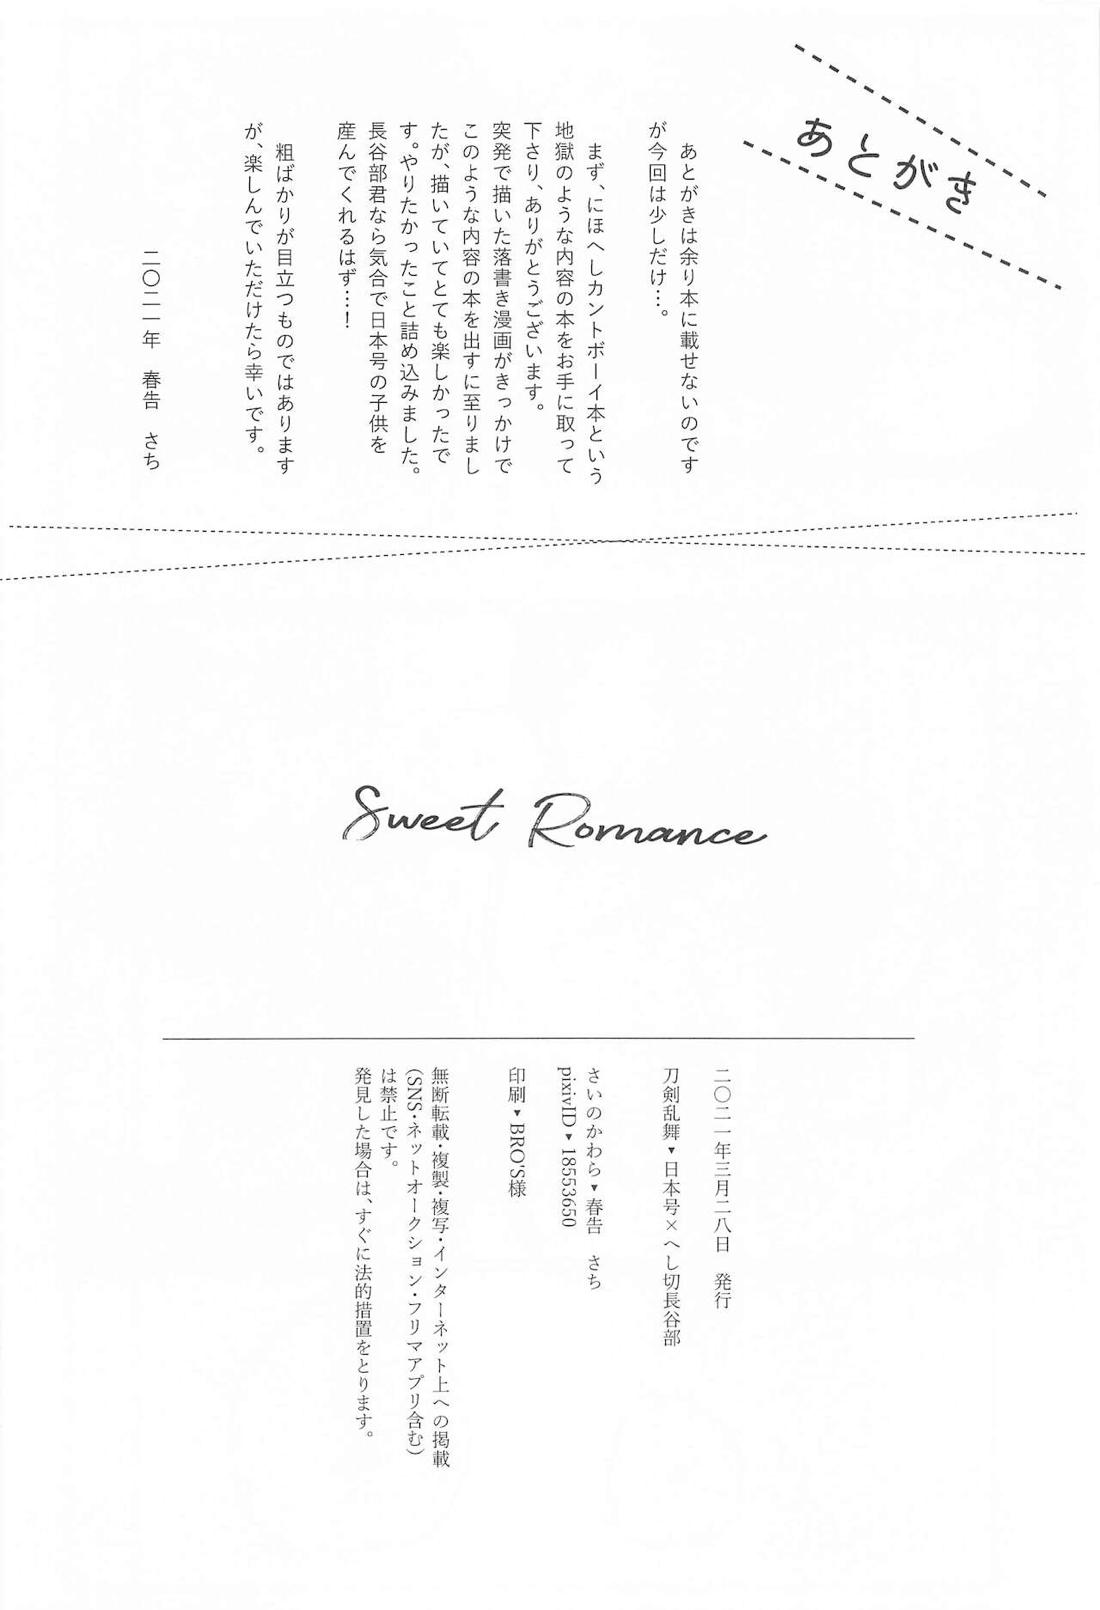 あとがき
あとがきは余り本に載せないのです
が今回は少しだけ…。
まず、にほへしカントボーイ本という
地獄のような内容の本をお手に取って
下さり、ありがとうございます。
突発で描いた落書き漫画がきっかけで
このような内容の本を出すに至りまし
たが、描いていてとても楽しかったで
す。やりたかったこと詰め込みました。
長谷部君なら気合で日本号の子供を
産んでくれるはず…！
粗ばかりが目立つものではあります
が、楽しんでいただけたら幸いです。
二〇二一年　春告　さち
Sweet Romance
二〇二一年三月二八日　発行
刀剣乱舞▼日本号×へし切長谷部
さいのかわら▼春告　さち
pixivID▼18553650
印刷▼BRO'S様
無断転載・複製・複写・インターネット上への掲載
(SNS・ネットオークション・フリマアプリ含む)
は禁止です。
発見した場合は、すぐに法的措置をとります。